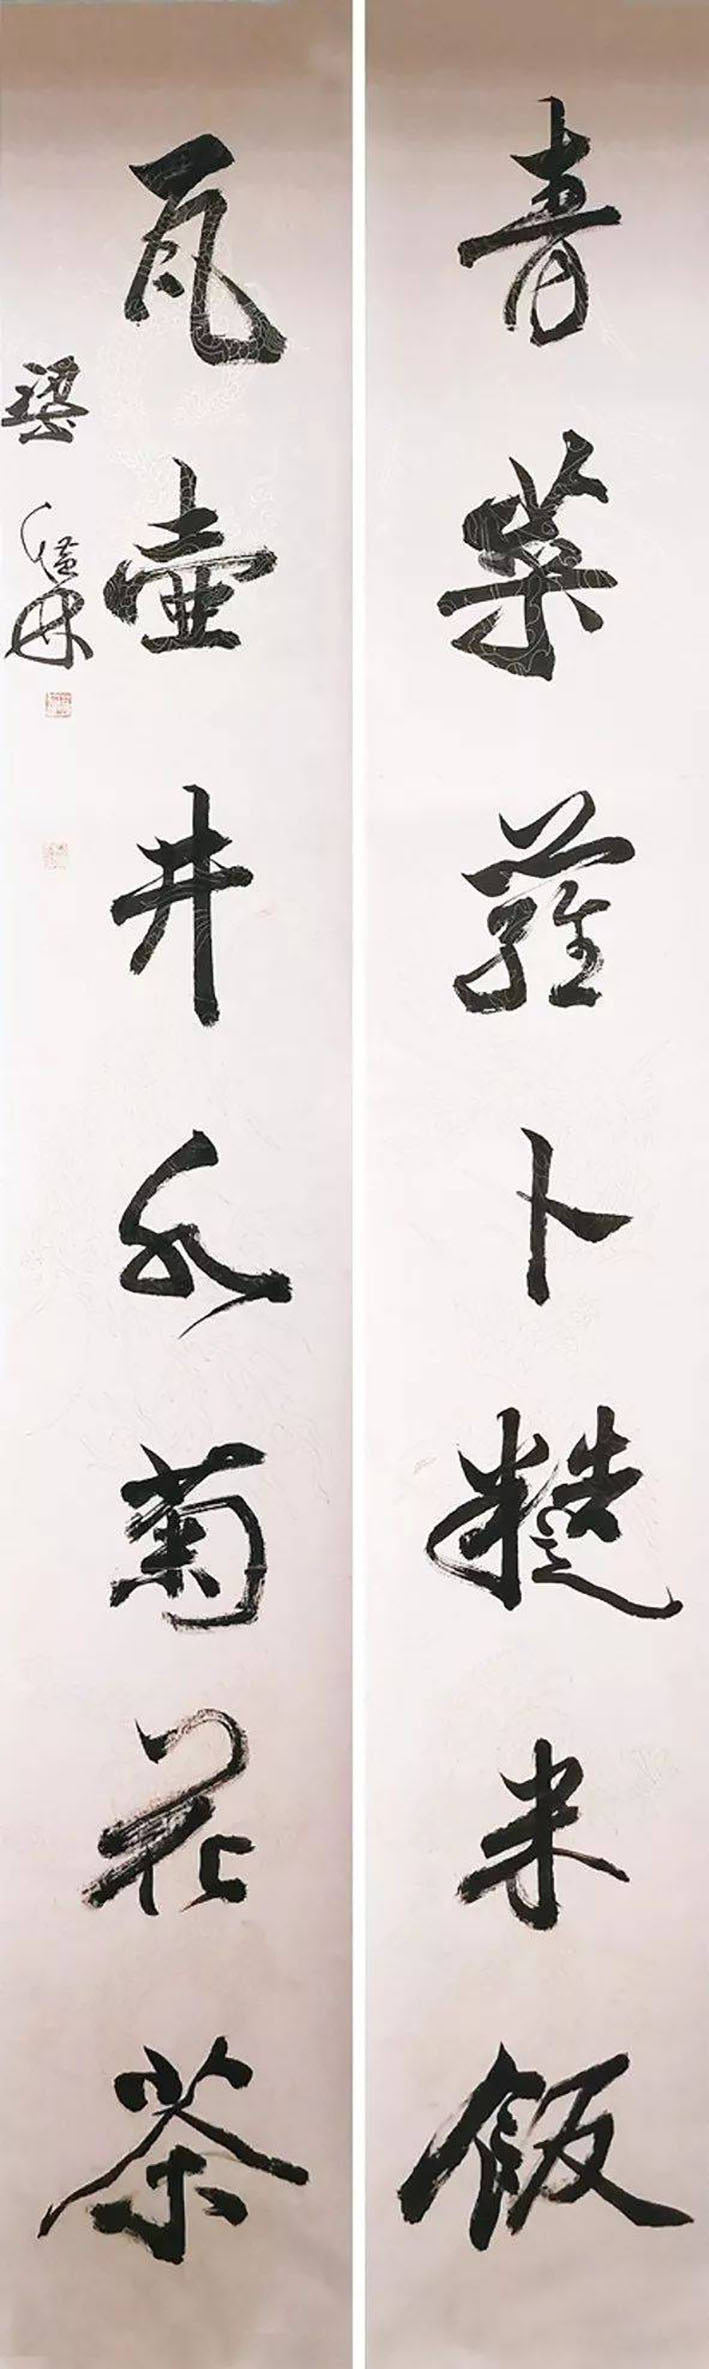 青菜蘿卜糙米飯
瓦壺井水菊花茶